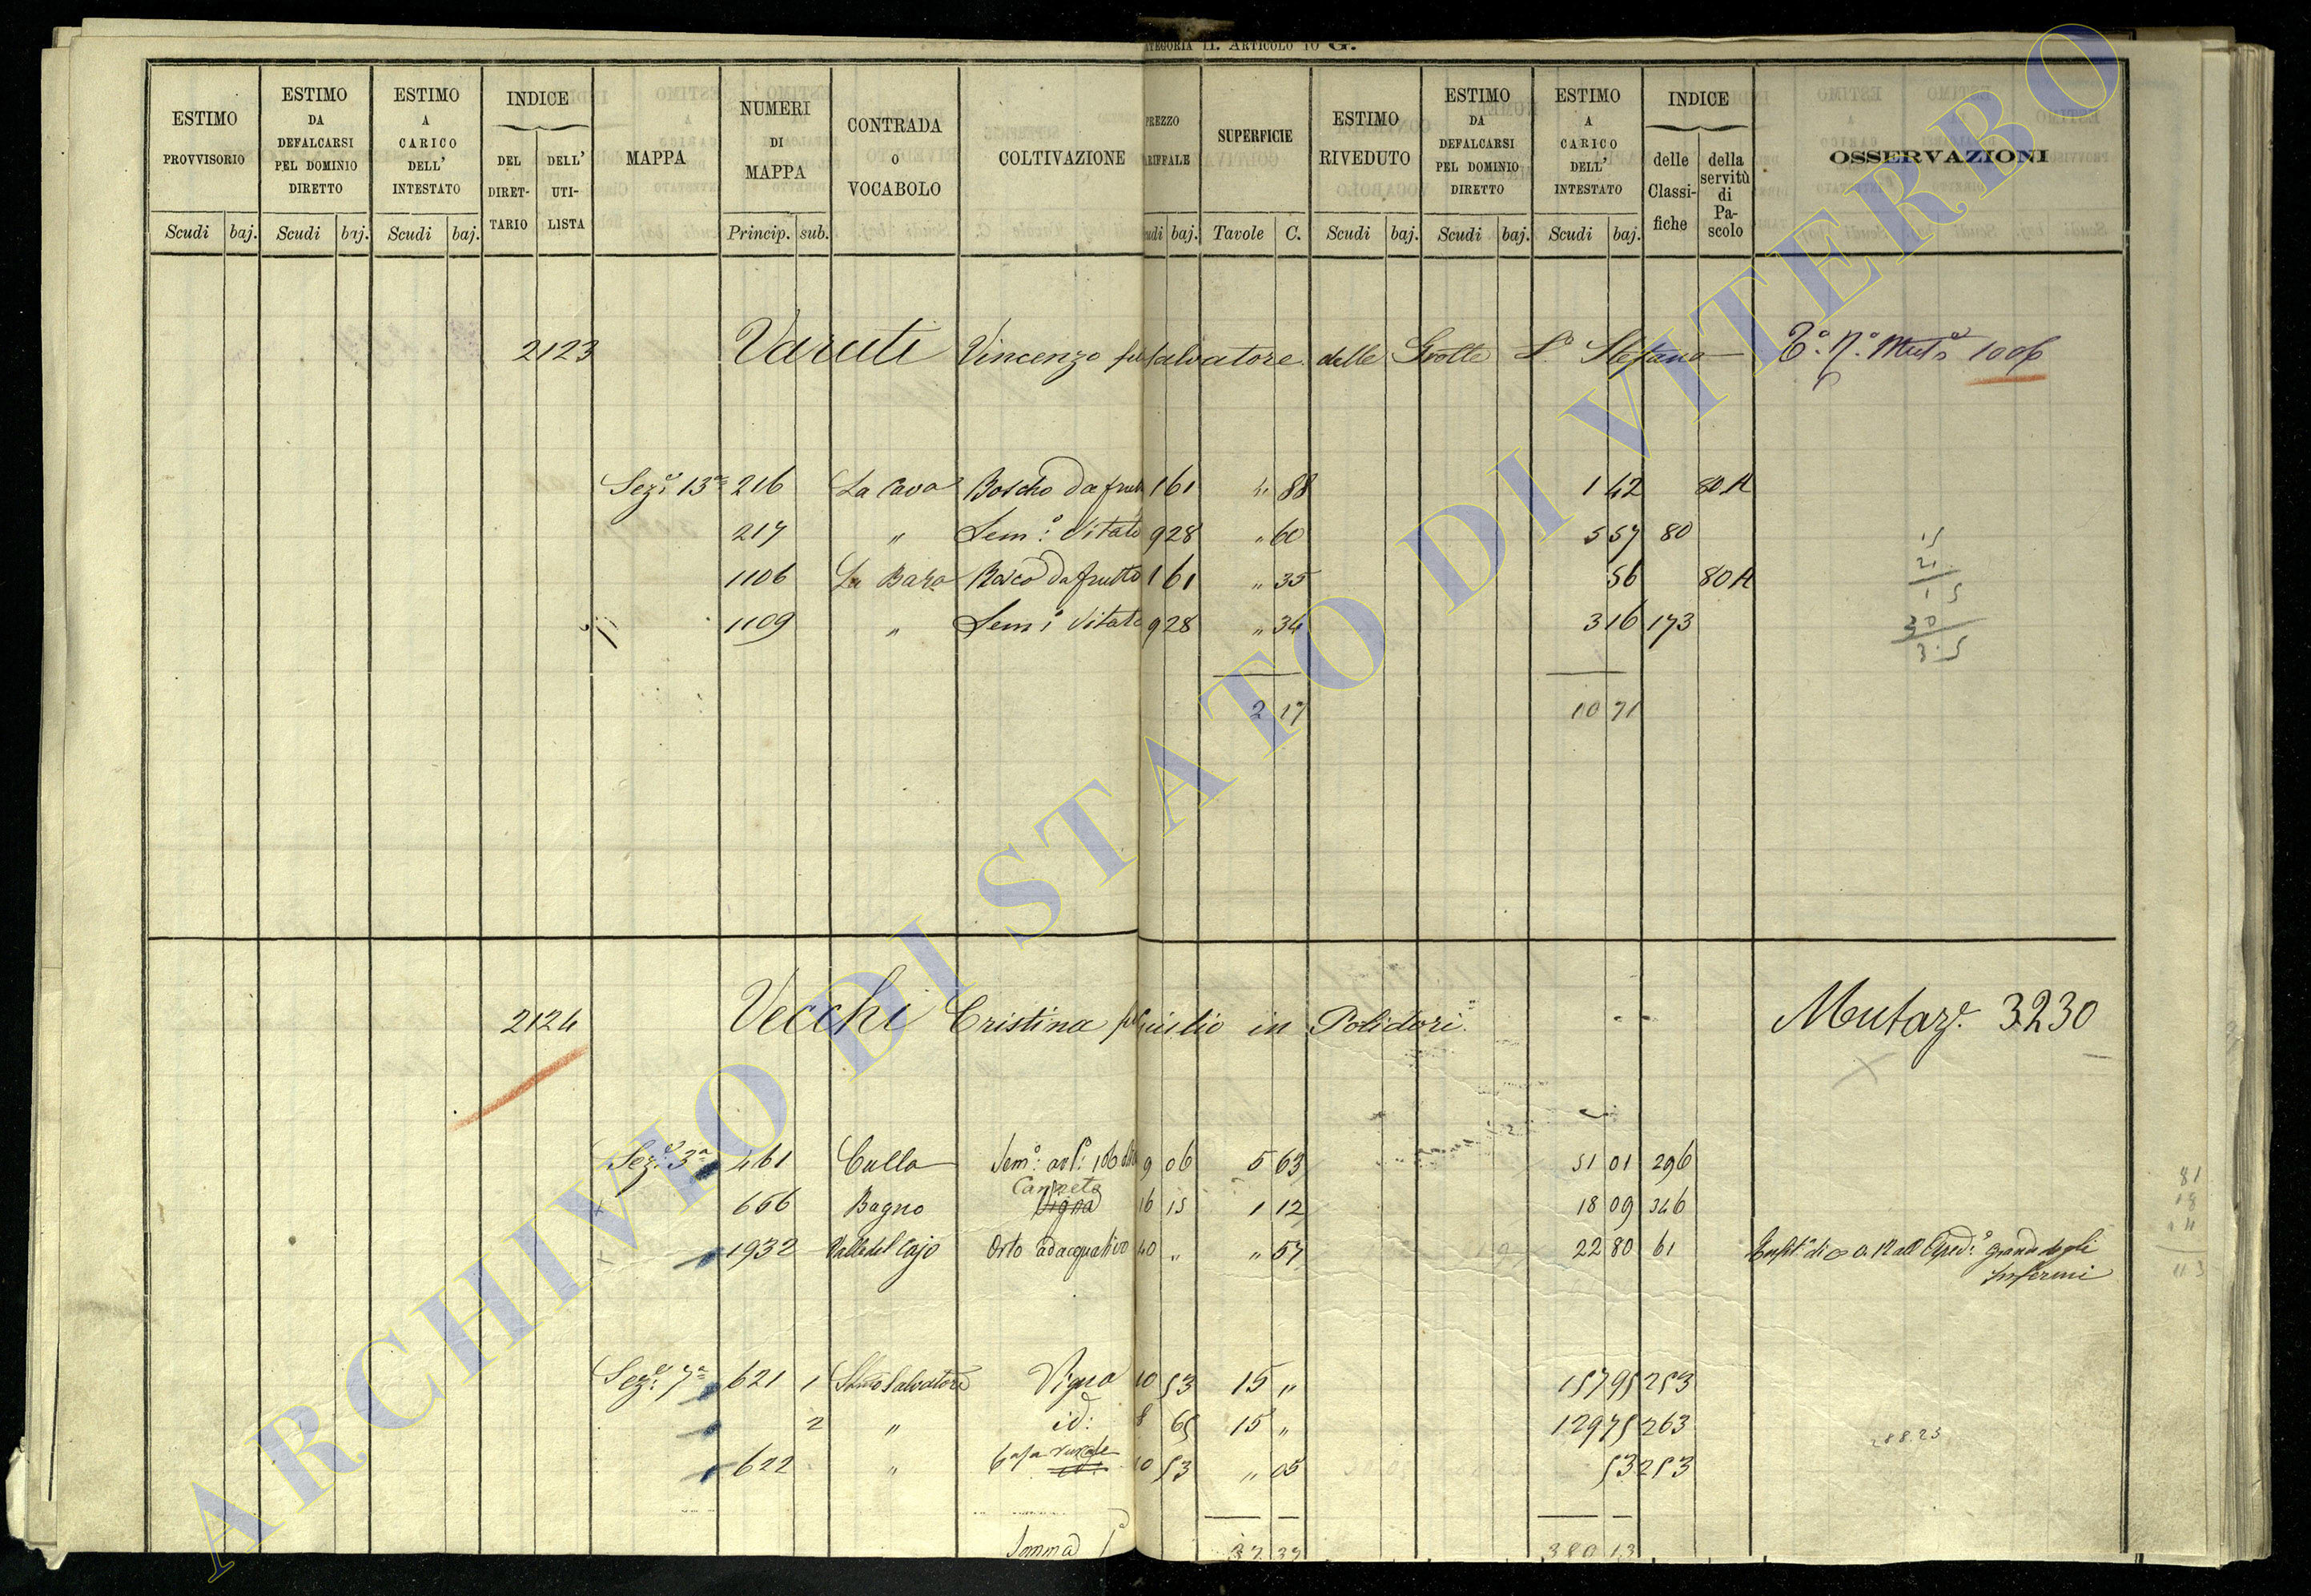 ATEGORIA II. ARTICOLO 10 G.
ESTIMO PROVVISORIO
ESTIMO DA DEFALCARSI PEL DOMINIO DIRETTO
ESTIMO A CARICO DELL' INTESTATO
INDICE
DEL DIRET-TARIO
DELL' UTI-LISTA
MAPPA
NUMERI DI MAPPA
CONTRADA O VOCABOLO
COLTIVAZIONE
PREZZO ARIFFALE
SUPERFICIE
ESTIMO RIVEDUTO
ESTIMO DA DEFALCARSI PEL DOMINIO DIRETTO
ESTIMO A CARICO DELL' INTESTATO
INDICE
delle Classi-fiche
della servitù di Pa-scolo
OSSERVAZIONI
Scudi baj. Scudi baj. Scudi baj. Princip. sub. udi baj. Tavole C. Scudi baj. Scudi baj. Scudi baj.
2123 Varuti Vincenzo fu Salvatore delle Grotte S. Stefano 1006
Sez. 13a 216 La Cava Boscho da frutt 1 61 " 88 1 42 80 A
217 " Sem: Vitato 9 28 " 60 5 57 80
1106 La Bara Bosco da frutto 1 61 " 35 56 80 A
1109 " Sem: Vitato 9 28 " 34 3 16 173
2 17 10 71
2124 Vecchi Cristina fu Giulio in Polidori Mutaz. 3230
Sez. 3a 461 Culla Sem: 9 06 5 63 51 01 296
Canneto
656 Bagno Vigna 16 15 1 12 18 09 346
1932 Valle del Cajo Orto adacquativo 40 " " 57 22 80 61 grande degli
Infermi
Sez. 7a 621 1 Salvatore Vigna 10 53 15 " 157 95 253
2 " id: 8 65 15 " 129 75 263
622 " Casa rurale 10 53 " 05 53 253
Somma 37 37 380 13
ARCHIVIO DI STATO DI VITERBO